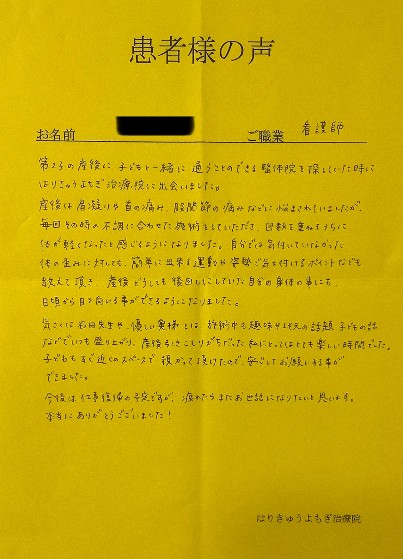 患者様の声
お名前
ご職業 看護師
第2子の産後に、子どもと一緒に通うことのできる整体院を探していた時に
はりきゅうよもぎ治療院に出会いました。
産後は肩凝りや首の痛み、股関節の痛みなどに悩まされていましたが、
毎回その時の不調に合わせた施術をしていただき、回数を重ねるうちに
体が軽くなったと感じるようになりました。自分では気付いていなかった
体の歪みに対しても、簡単に出来る運動や姿勢で気を付けるポイントなども
教えて頂き、産後どうしても後回しにしていた自分の身体の事にも、
日頃から目を向ける事ができるようになりました。
気さくな石田先生や、優しい奥様とは、施術中も趣味や地元の話題、子どもの話
などでいつも盛り上がり、産後引きこもりがちだった私にとってはとても楽しい時間でした。
子どももすぐ近くのスペースで預かって頂けたので、安心してお願いする事が
できました。
今後は仕事復帰の予定ですが、疲れたらまたお世話になりたいと思います。
本当にありがとうございました!
はりきゅうよもぎ治療院